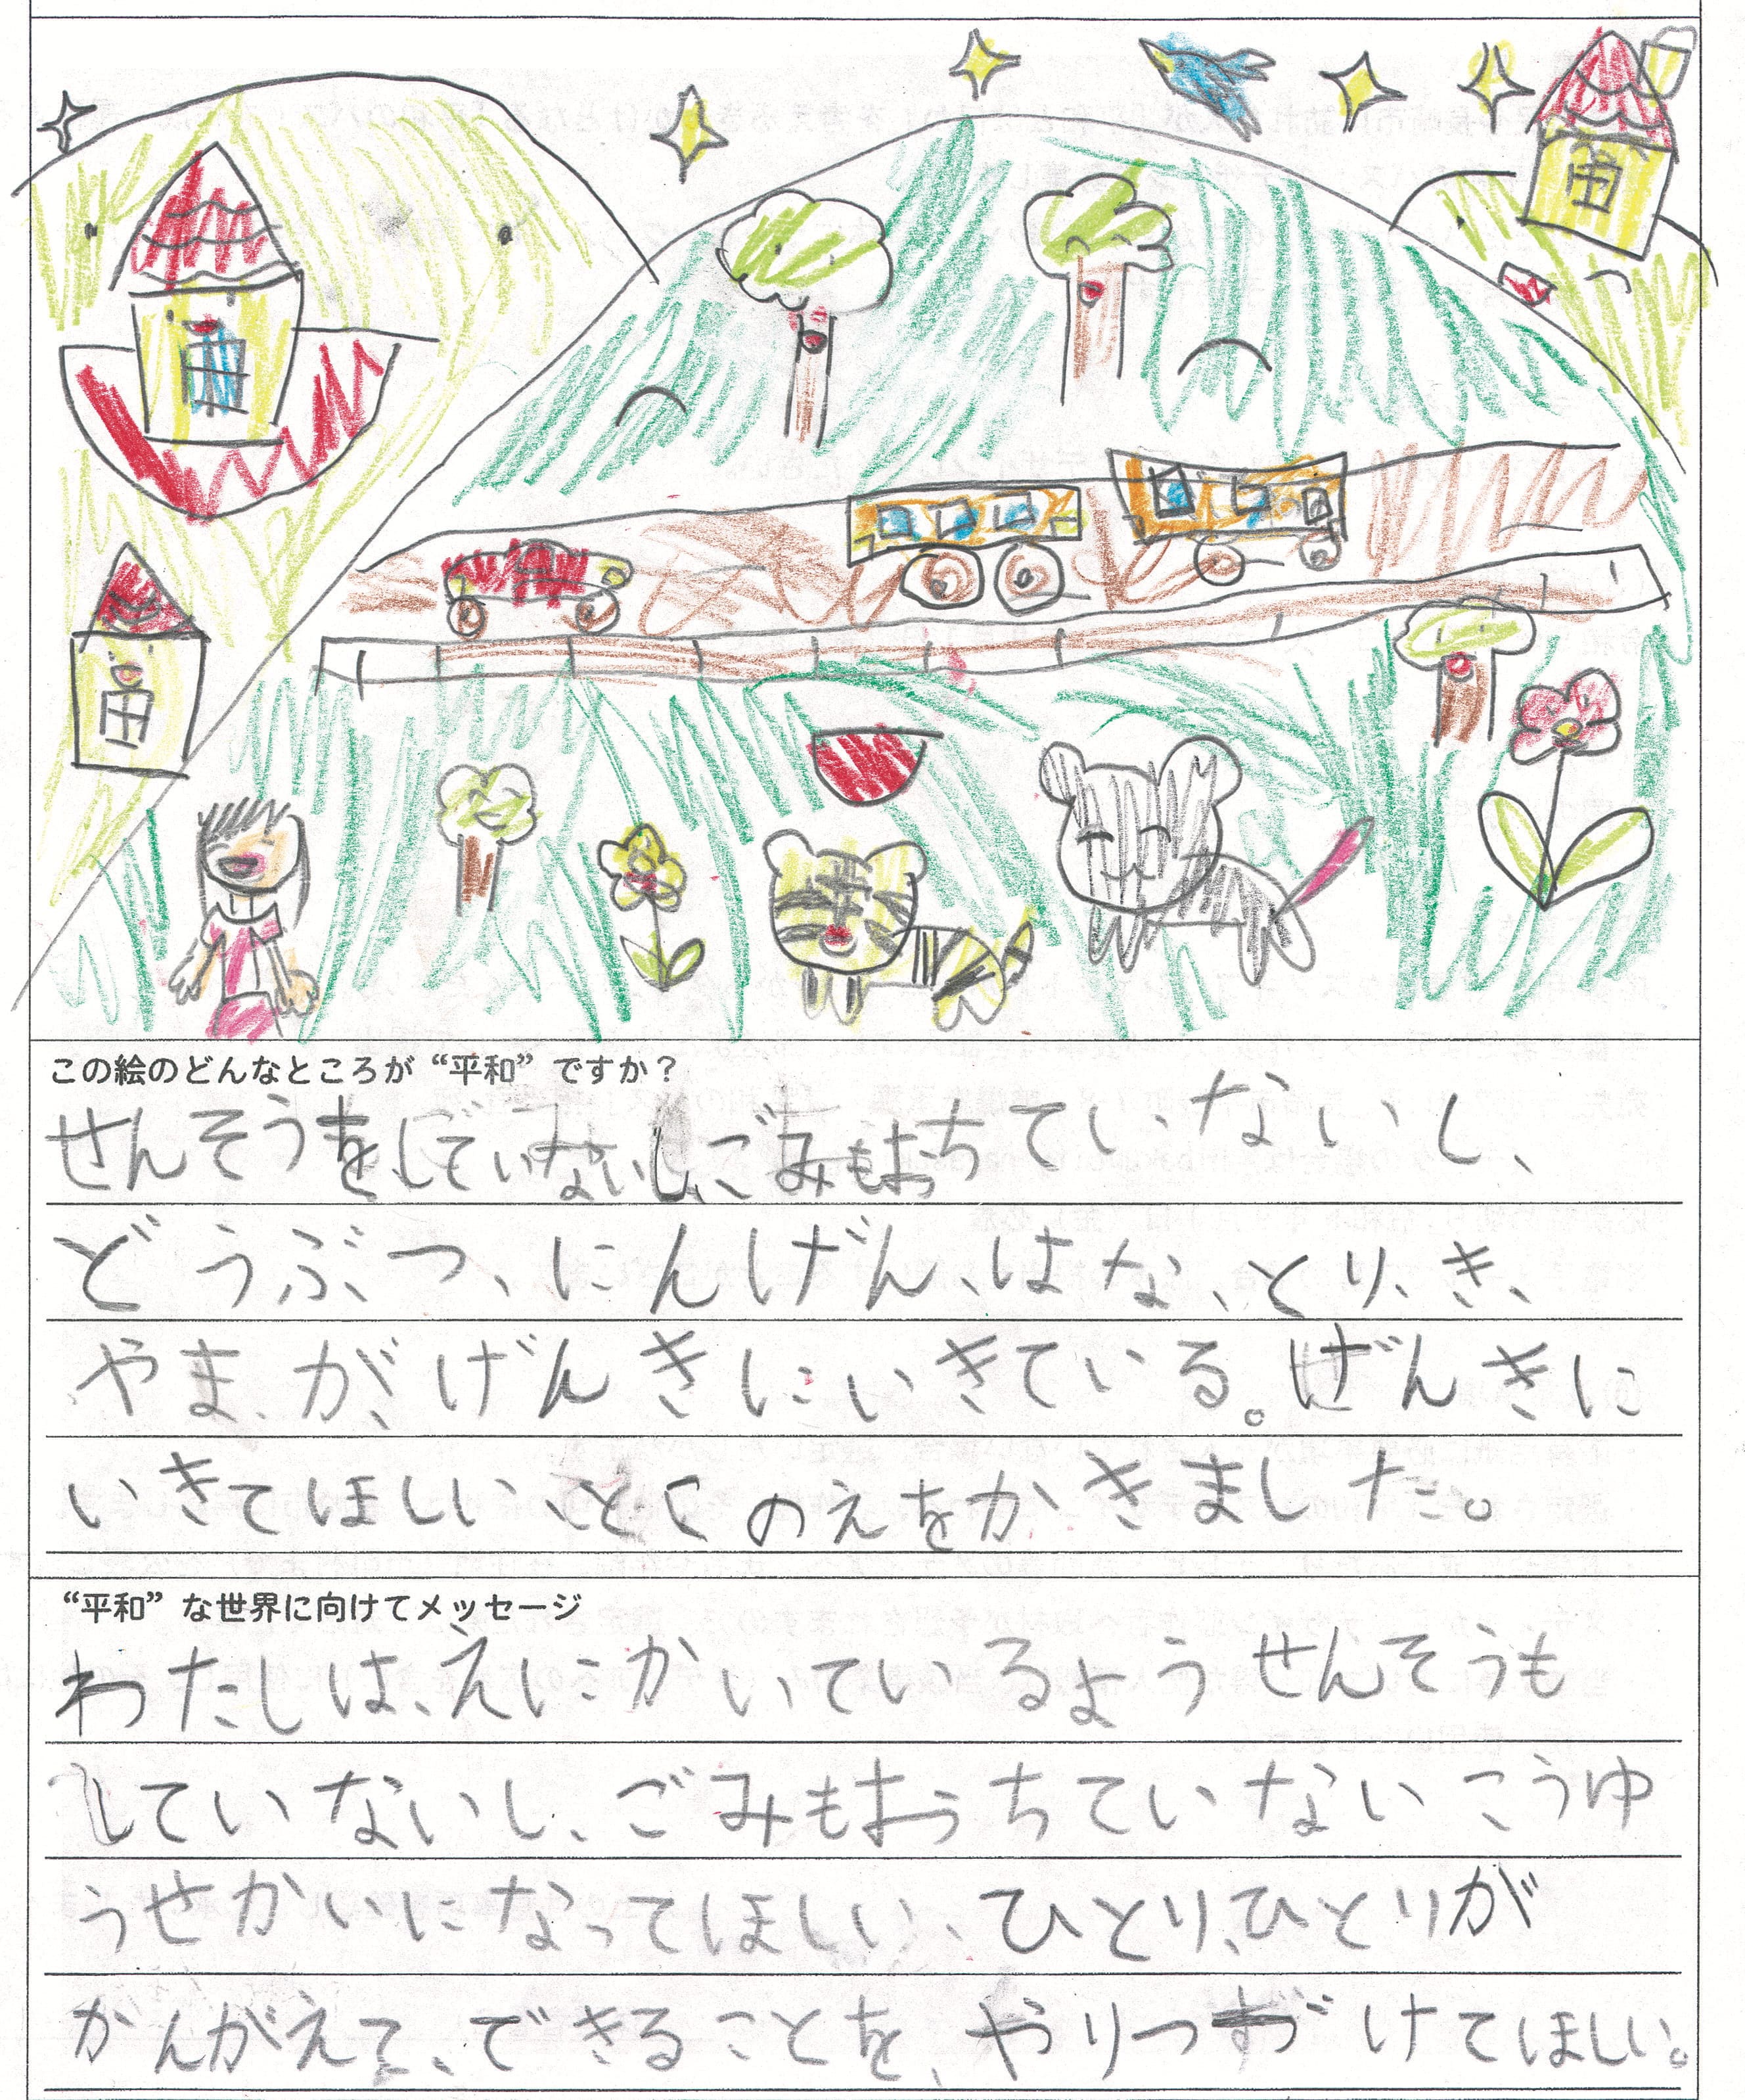 この絵のどんなところが“平和”ですか？
せんそうをしていないし、ごみもおっちていないし、
どうぶつ、にんげん、はな、とり、き、
やま、が、げんきにいきている。げんきに
いきてほしい、とこのえをかきました。
“平和”な世界に向けてメッセージ
わたしは、えにかいているようせんそうも
していないし、ごみもおっちていないこうゆ
うせかいになってほしい、ひとり、ひとりが
かんがえて、できることを、やりつづけてほしい。